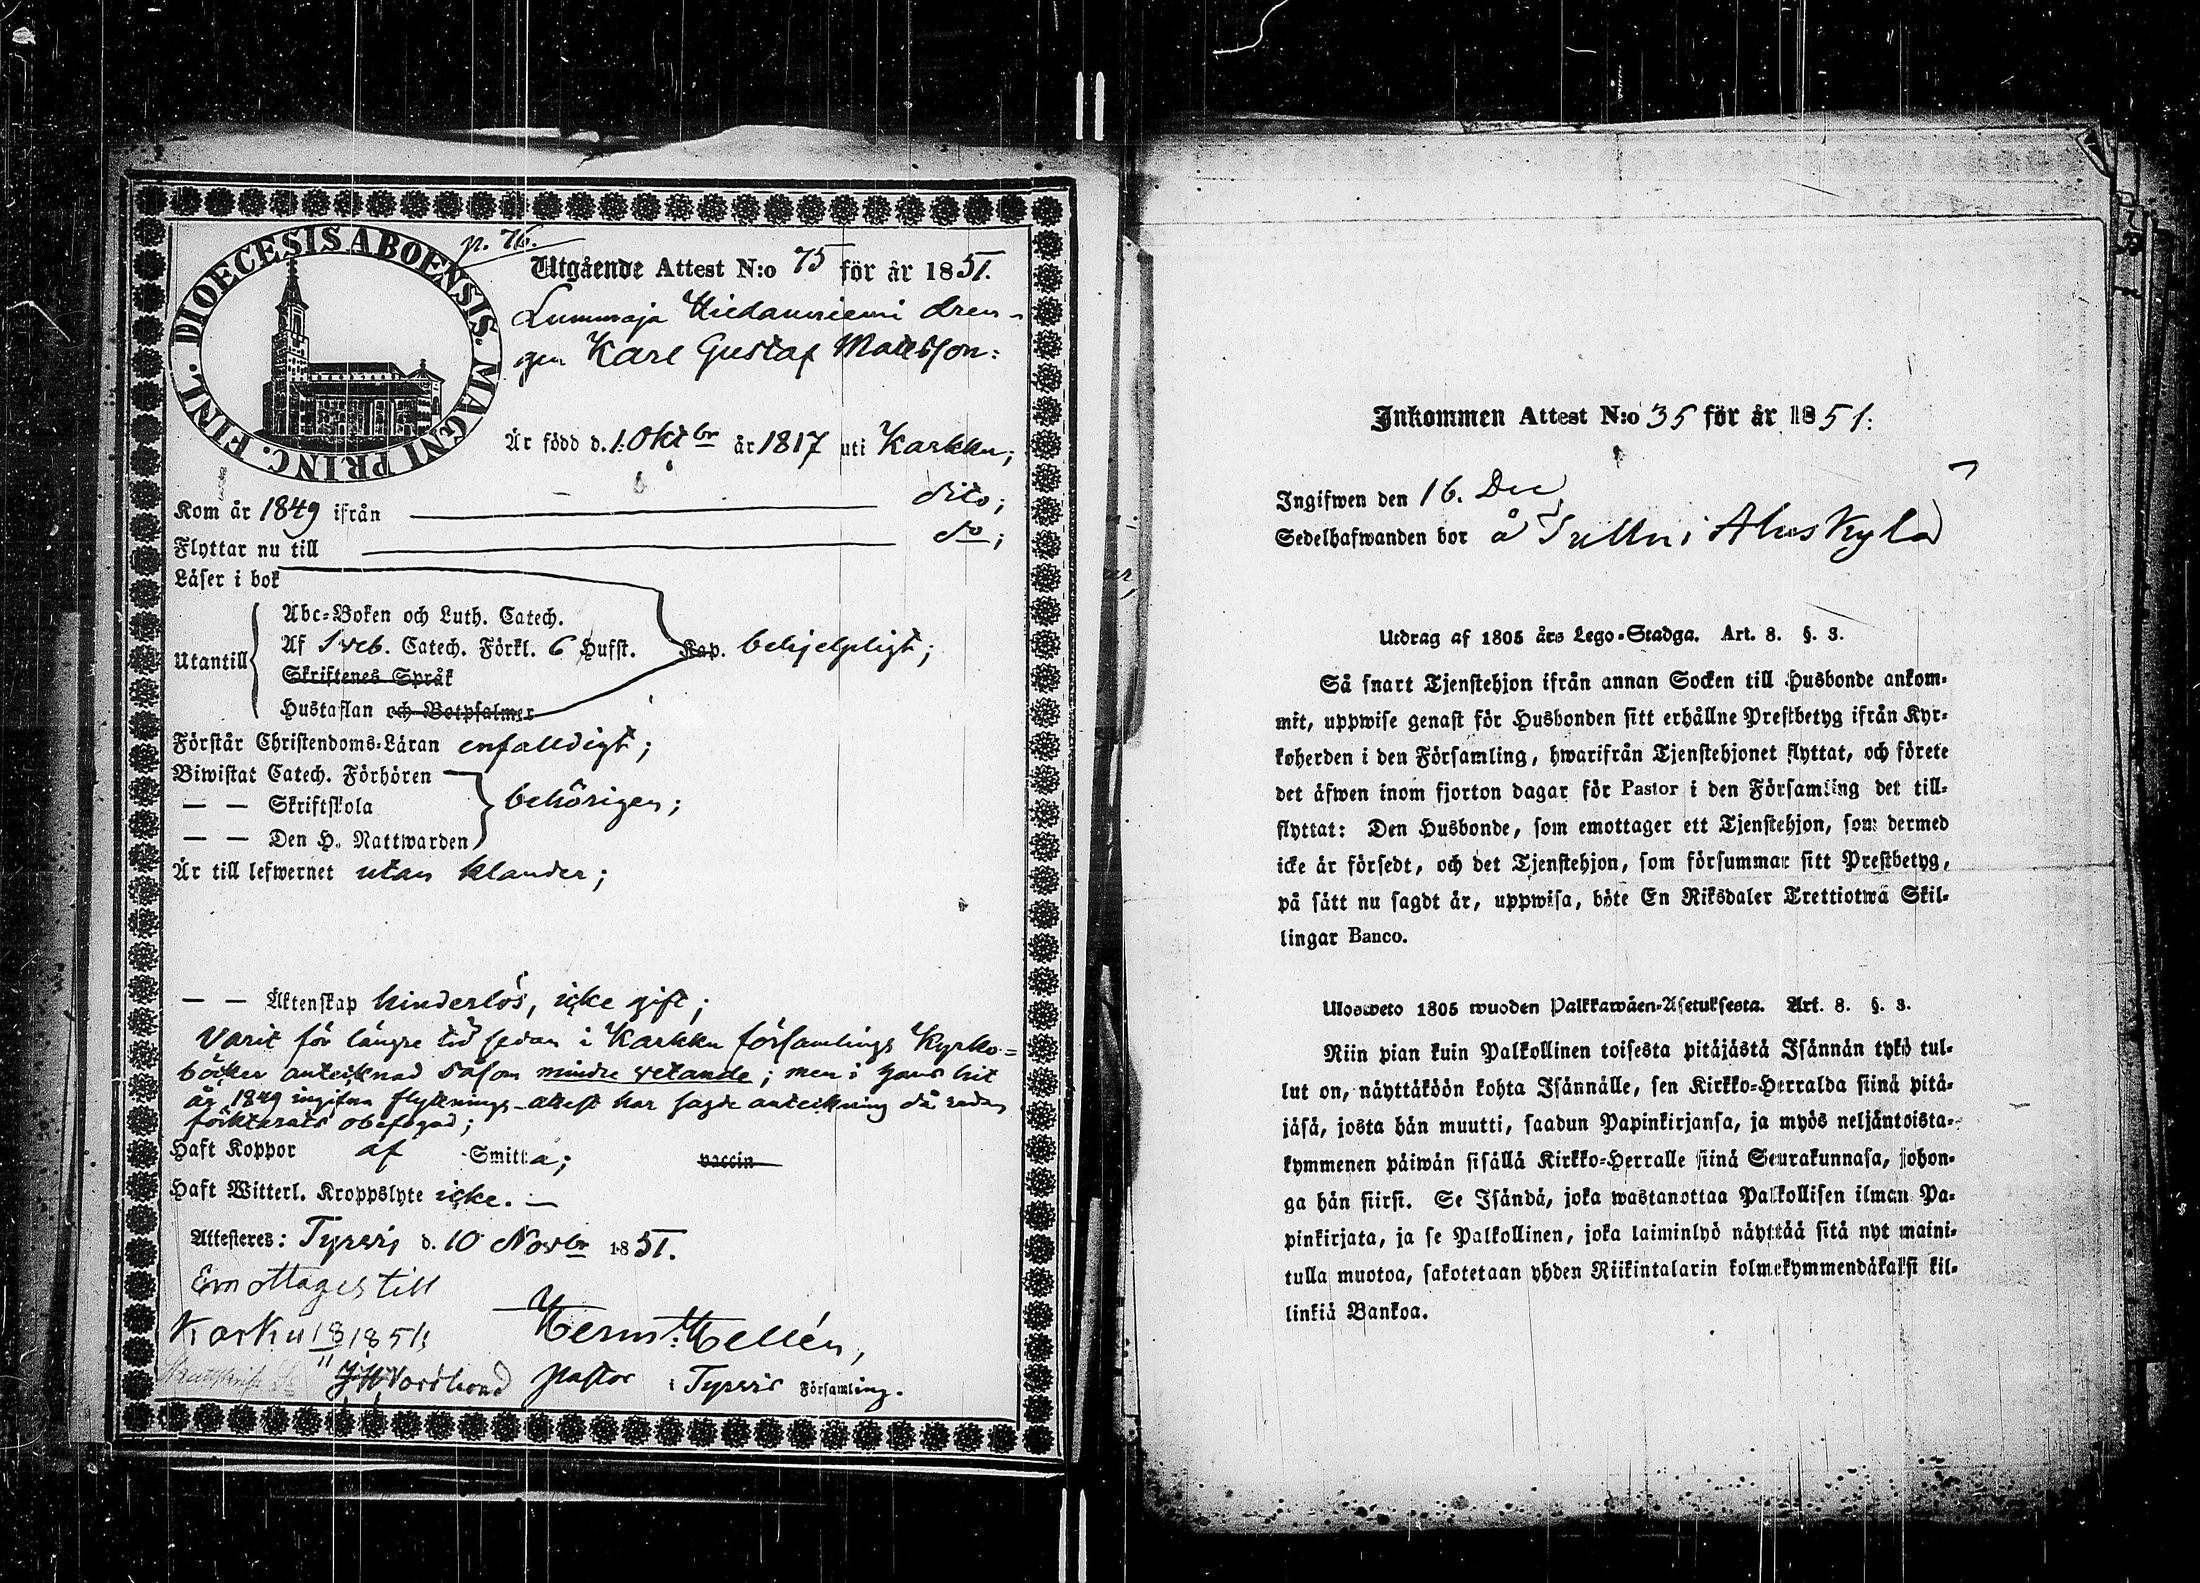 DIOECESIS ABOENSIS. MAGNI PRINC. FINL.
p. 76.
Utgående Attest N:o 75 för år 1851.
Lummaja dren-
gen Karl Gustaf Mattsson:
Är född d. 1. Oktbr år 1817 uti Karkku;
Kom år 1849 ifrån dito;
Flyttar nu till do;
Läser i bok
Utantill
Abc-Boken och Luth. Catech.
Af Sveb. Catech. Förkl. 6 Hufst. Kap. behjelpligt;
Skriftenes Språk
Hustaflan och Botpsalmer
Förstår Christendoms-Läran enfalldigt;
Biwistat Catech. Förhören
— — Skriftskola behörigen;
— — Den H. Nattwarden
Är till lefwernet utan klander;
— — Äktenskap hinderlös, icke gift;
Varit för längre tid sedan i Karkku församlings Kyrko=
böcker antecknad såsom mindre vetande; men i hans hit
år 1849 ingifna flyttnings-attest har sagde anteckning då redan
förklarats obefogad;
Haft Koppor af Smitta; vaccin
Haft Witterl. Kroppslyte icke. —
Attesteres: Tyrvis d. 10 Novbr 1851.
Emottages till
Karku 18 18 51.
11
Herm. Hellén,
Nordlund Pastor i Tyrvis Församling.
Inkommen Attest N:o 35 för år 1851:
Ingifwen den 16. Dec
Sedelhafwanden bor å Tulkn i Aluskylä
Utdrag af 1805 års Lego-Stadga. Art. 8. §. 3.
Så snart Tjenstehjon ifrån annan Socken till Husbonde ankom-
mit, uppwise genast för Husbonden sitt erhållne Prestbetyg ifrån Kyr-
koherden i den Församling, hwarifrån Tjenstehjonet flyttat, och förete
det äfwen inom fjorton dagar för Pastor i den Församling det till-
flyttat: Den Husbonde, som emottager ett Tjenstehjon, som dermed
icke är försedt, och det Tjenstehjon, som försummar sitt Prestbetyg,
på sätt nu sagdt är, uppwisa, böte En Riksdaler Trettiotwå Skil-
lingar Banco.
Ulosweto 1805 wuoden Palkkawäen-Asetuksesta. Art. 8. §. 3.
Niin pian kuin Palkollinen toisesta pitäjästä Isännän tykö tul-
lut on, näyttäköön kohta Isännälle, sen Kirkko-Herralda siinä pitä-
jäsä, josta hän muutti, saadun Papinkirjansa, ja myös neljäntoista-
kymmenen päiwän sisällä Kirkko-Herralle siinä Seurakunnasa, johon-
ga hän siirsi. Se Isändä, joka wastanottaa Palkollisen ilman Pa-
pinkirjata, ja se Palkollinen, joka laiminlyö näyttää sitä nyt maini-
tulla muotoa, sakotetaan yhden Riikintalarin kolmekymmendäkaksi kil-
linkiä Bankoa.